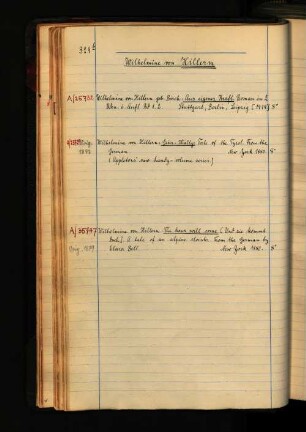 321b
Wilhelmine von Hillern
Wilhelmine von Hillern geb. Birch. Aus eigener Kraft. Roman in 3
Stuttgart, Berlin, Leipzig
1892 Wilhelmine von Hillern. Geier-Wally. Tale of the Tyrol. From the
German. New York 1880. 8°
(Appletons' new handy-volume series)
Wilhelmine von Hillern. The hour will come [Und sie kommt
doch]. A tale of an alpine cloister. From the German by
Aug. 1899 Clara Bell. New York 1880. 8°